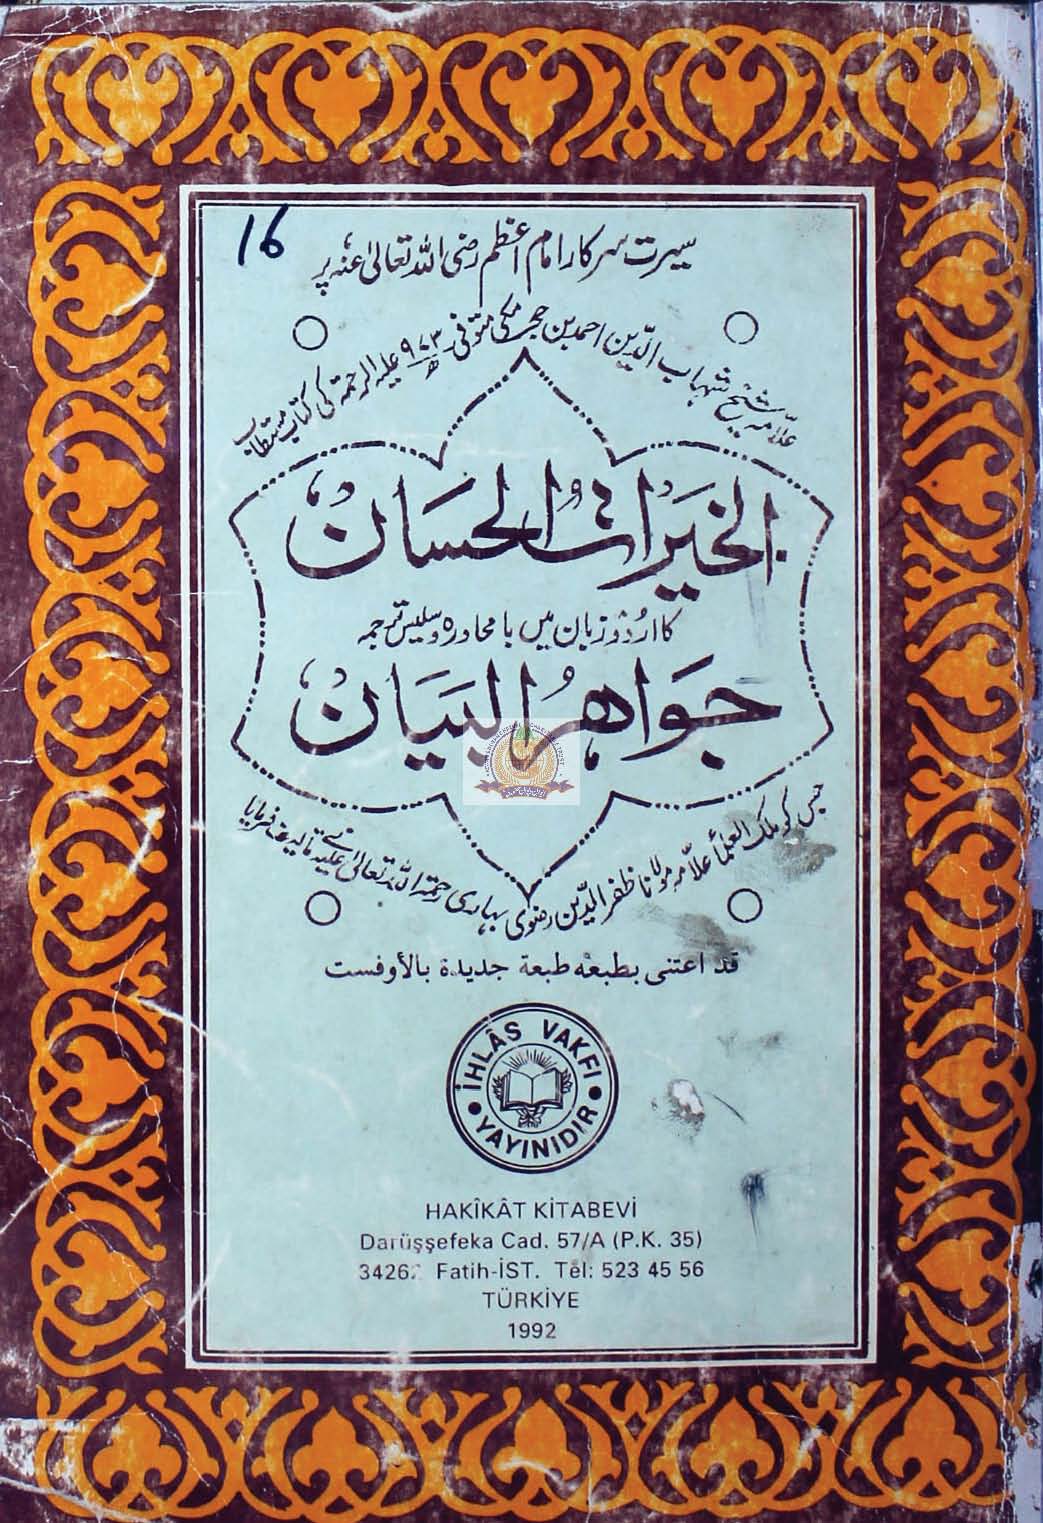 16
سیرت سرکار امام اعظم رضی اللہ تعالیٰ عنہ پر
علامہ شیخ شہاب الدین احمد بن حجر مکی متوفی ۹۷۳ھ علیہ الرحمۃ کی کتاب مستطاب
الخَیرَاتُ الحِسَان
کا اُردُو زبان میں بامحاورہ و سلیس ترجمہ
جَوَاهِرُ البَیَان
جس کو ملک العلماء علّامہ مولانا ظفر الدین رضوی بہاری رحمۃ اللہ تعالیٰ علیہ نے تالیف فرمایا
قد اعتنى بطبعه طبعة جديدة بالأوفست
İHLÂS VAKFI
YAYINIDIR
HAKÎKÂT KİTABEVİ
Darüşşefeka Cad. 57/A (P.K. 35)
34262 Fatih-İST. Tel: 523 45 56
TÜRKİYE
1992